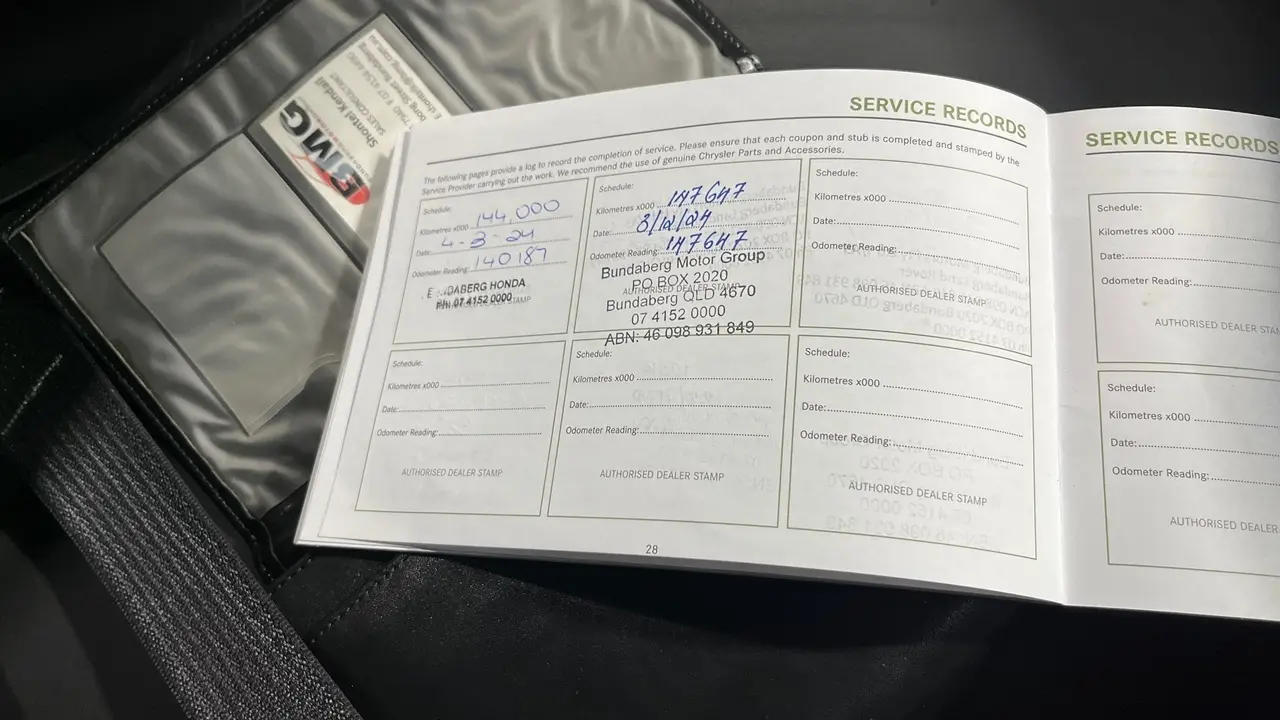 BMG
Shontel Kendall
SALES CONSULTANT
SERVICE RECORDS
The following pages provide a log to record the completion of service. Please ensure that each coupon and stub is completed and stamped by the
Service Provider carrying out the work. We recommend the use of genuine Chrysler Parts and Accessories.
Schedule:
Kilometres x000 144,000
Date: 4-3-24
Odometer Reading: 140187
BUNDABERG HONDA
PH: 07 4152 0000
Schedule:
Kilometres x000 147647
Date: 3/12/24
Odometer Reading: 147647
Bundaberg Motor Group
PO BOX 2020
AUTHORISED DEALER STAMP
Bundaberg QLD 4670
07 4152 0000
ABN: 46 098 931 849
Schedule:
Kilometres x000
Date:
Odometer Reading:
AUTHORISED DEALER STAMP
Schedule:
Kilometres x000
Date:
Odometer Reading:
AUTHORISED DEALER STAMP
Schedule:
Kilometres x000
Date:
Odometer Reading:
AUTHORISED DEALER STAMP
Schedule:
Kilometres x000
Date:
Odometer Reading:
AUTHORISED DEALER STAMP
28
SERVICE RECORDS
Schedule:
Kilometres x000
Date:
Odometer Reading:
AUTHORISED DEALER STAMP
Schedule:
Kilometres x000
Date:
Odometer Reading:
AUTHORISED DEALER